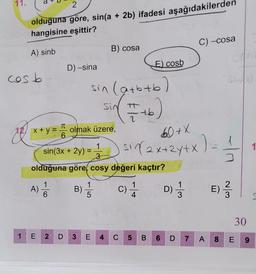 11.
2
olduğuna göre, sin(a + 2b) ifadesi aşağıdakilerden
hangisine eşittir?
A) sinb B) cosa C) –cosa
D) –sina E) cosb
cosb
sin(a+b+b)
sin(π/2+b)
12. x + y = π/6 olmak üzere, 60+x
sin(3x + 2y) = 1/3 sin(2x+2y+x) = 1/3
olduğuna göre, cosy değeri kaçtır?
A) 1/6 B) 1/5 C) 1/4 D) 1/3 E) 2/3
30
1 E 2 D 3 E 4 C 5 B 6 D 7 A 8 E 9